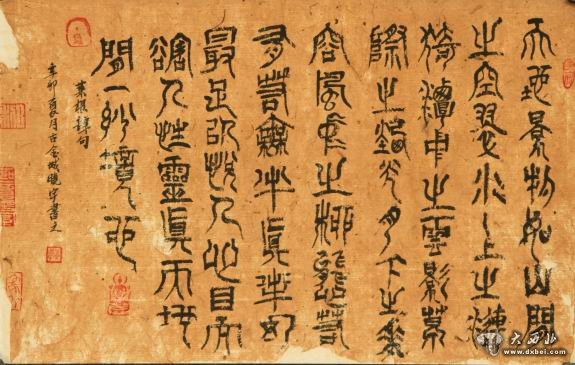 天地景物如山間
之空翠水上之漣
漪潭中之雲影草
際之煙光月下之花
容風中之柳態若
有若無半真半幻
最足以悅人心目而
豁人性靈真天地
間一妙境也
菜根譚句
辛卯夏月古金城曉宇書之
大西北
www.dxbei.com